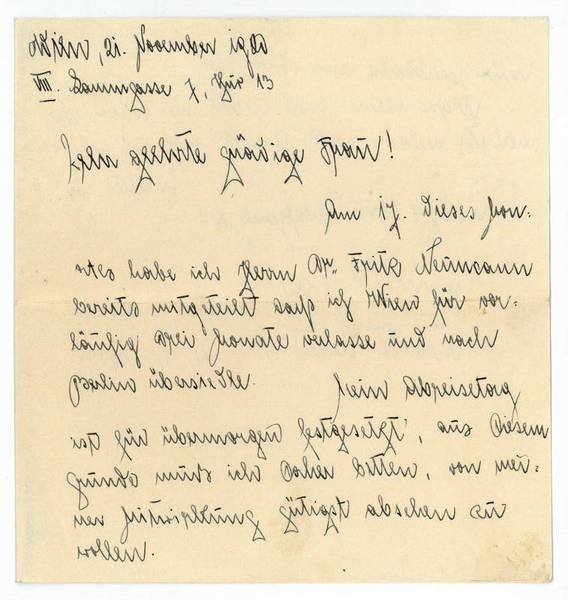 Wien, 21. November 1920
VIII. Lammgasse 7, Tür 13
Sehr geehrte gnädige Frau!
Am 17. dieses Mon-
ates habe ich Herrn Dr. Fritz Neumann
bereits mitgeteilt dass ich Wien für vor-
läufig drei Monate verlasse und nach
Berlin übersiedle. Mein Abreisetag
ist für übermorgen festgesetzt, aus diesem
Grunde muss ich daher bitten, von mei-
ner Mitwirkung gütigst absehen zu
wollen.